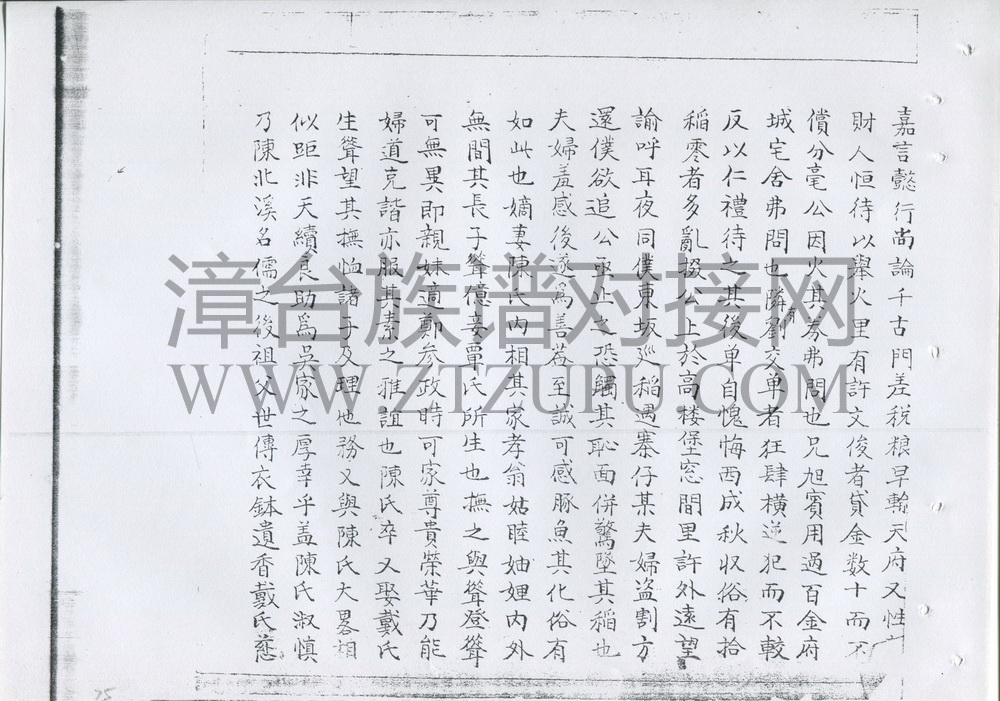 嘉言懿行尚論千古門差税粮早輸天府又性
財人恒待以舉火里有許文俊者貸金数十而不
償分毫公因火其券弗問也兄旭賓用過百金府
城宅舍弗問也隣有劉交単者狂肆横逆犯而不較
反以仁禮待之其後单自愧悔西成秋収俗有拾
稲零者多亂掇公上於高楼堡窓間里許外遠望
諭呼耳夜同僕東坂巡稲遇寨仔某夫婦盗割方
還僕欲追公亟止之恐觸其恥面併驚墜其稲也
夫婦羞感後遂為善茲至誠可感豚魚其化俗有
如此也嫡妻陳氏内相其家孝翁姑睦妯娌内外
無間其長子聳億妾覃氏所生也撫之與聳登聳
可無異即親妹適鄭参政時可家尊貴榮華乃能
婦道克諧亦服其素之雅誼也陳氏卒又娶戴氏
生聳望其撫恤諸子及理他務又與陳氏大畧相
似距非天續良助爲吳家之厚幸乎盖陳氏淑慎
乃陳北溪名儒之後祖父世傳衣鉢遺香戴氏慈
漳台族谱对接网
WWW.ZTZUPU.COM
75